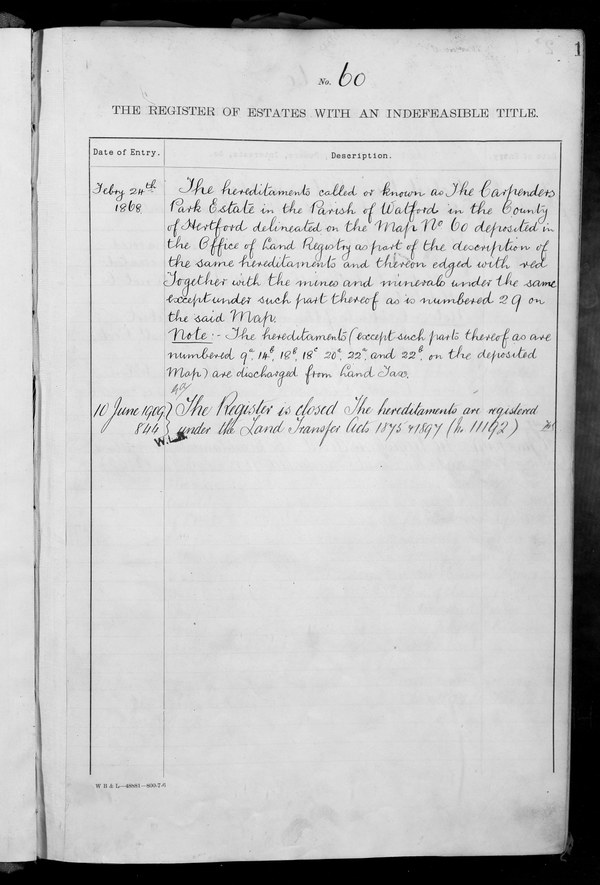 1
No. 60
THE REGISTER OF ESTATES WITH AN INDEFEASIBLE TITLE.
Date of Entry.
Description.
Febry 24th
1868
The hereditaments called or known as The Carpenders
Park Estate in the Parish of Watford in the County
of Hertford delineated on the Map No 60 deposited in
the Office of Land Registry as part of the description of
the same hereditaments and thereon edged with red
Together with the mines and minerals under the same
except under such part thereof as is numbered 29 on
the said Map.
Note:- The hereditaments (except such parts thereof as are
numbered 9a, 14b, 18b, 18c 20a, 22a, and 22b, on the deposited
Map) are discharged from Land Tax.
10 June 1909
844
The Register is closed The hereditaments are registered
under the Land Transfer Acts 1875 & 1897 (No 11192)
W.L.
W B & L—48881—800-7-6